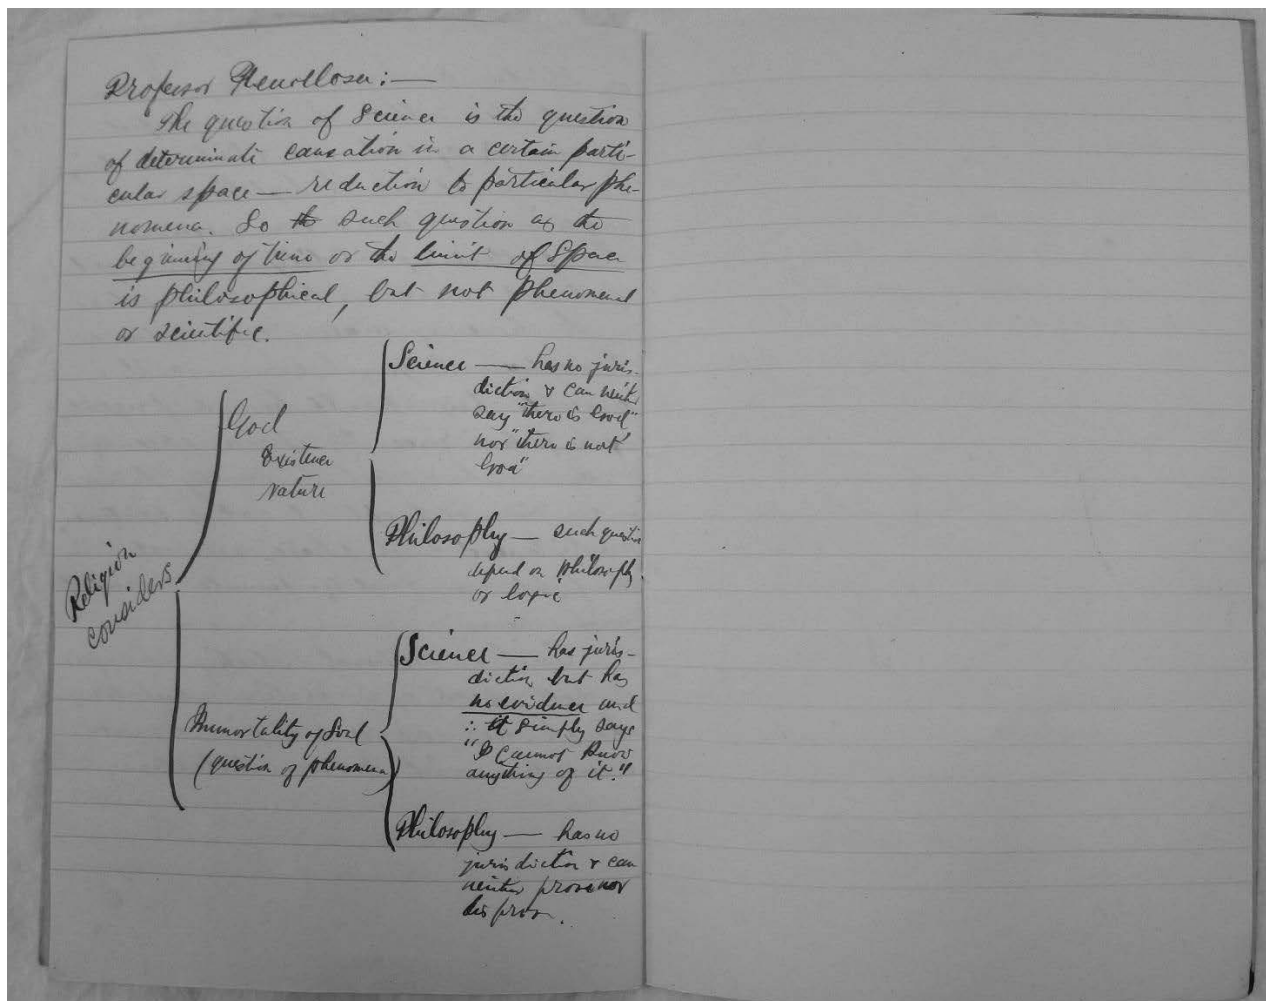 Professor Fenollosa:—
The question of Science is the question
of determinate causation in a certain parti-
cular space — reduction to particular phe-
nomena. So th such question as the
beginning of time or the limit of Space
is philosophical, but not phenomenal
or scientific.
Religion
considers
God
Existence
Nature
Science — has no juris-
diction & can neith
say "there is God"
nor "there is not
God"
Philosophy — such question
depend on philosophy
or logic
Immortality of Soul
(question of phenomena)
Science — has juris-
diction but has
no evidence and
∴ it simply says
"I cannot know
anything of it."
Philosophy — has no
jurisdiction & can
neither prove nor
disprove.